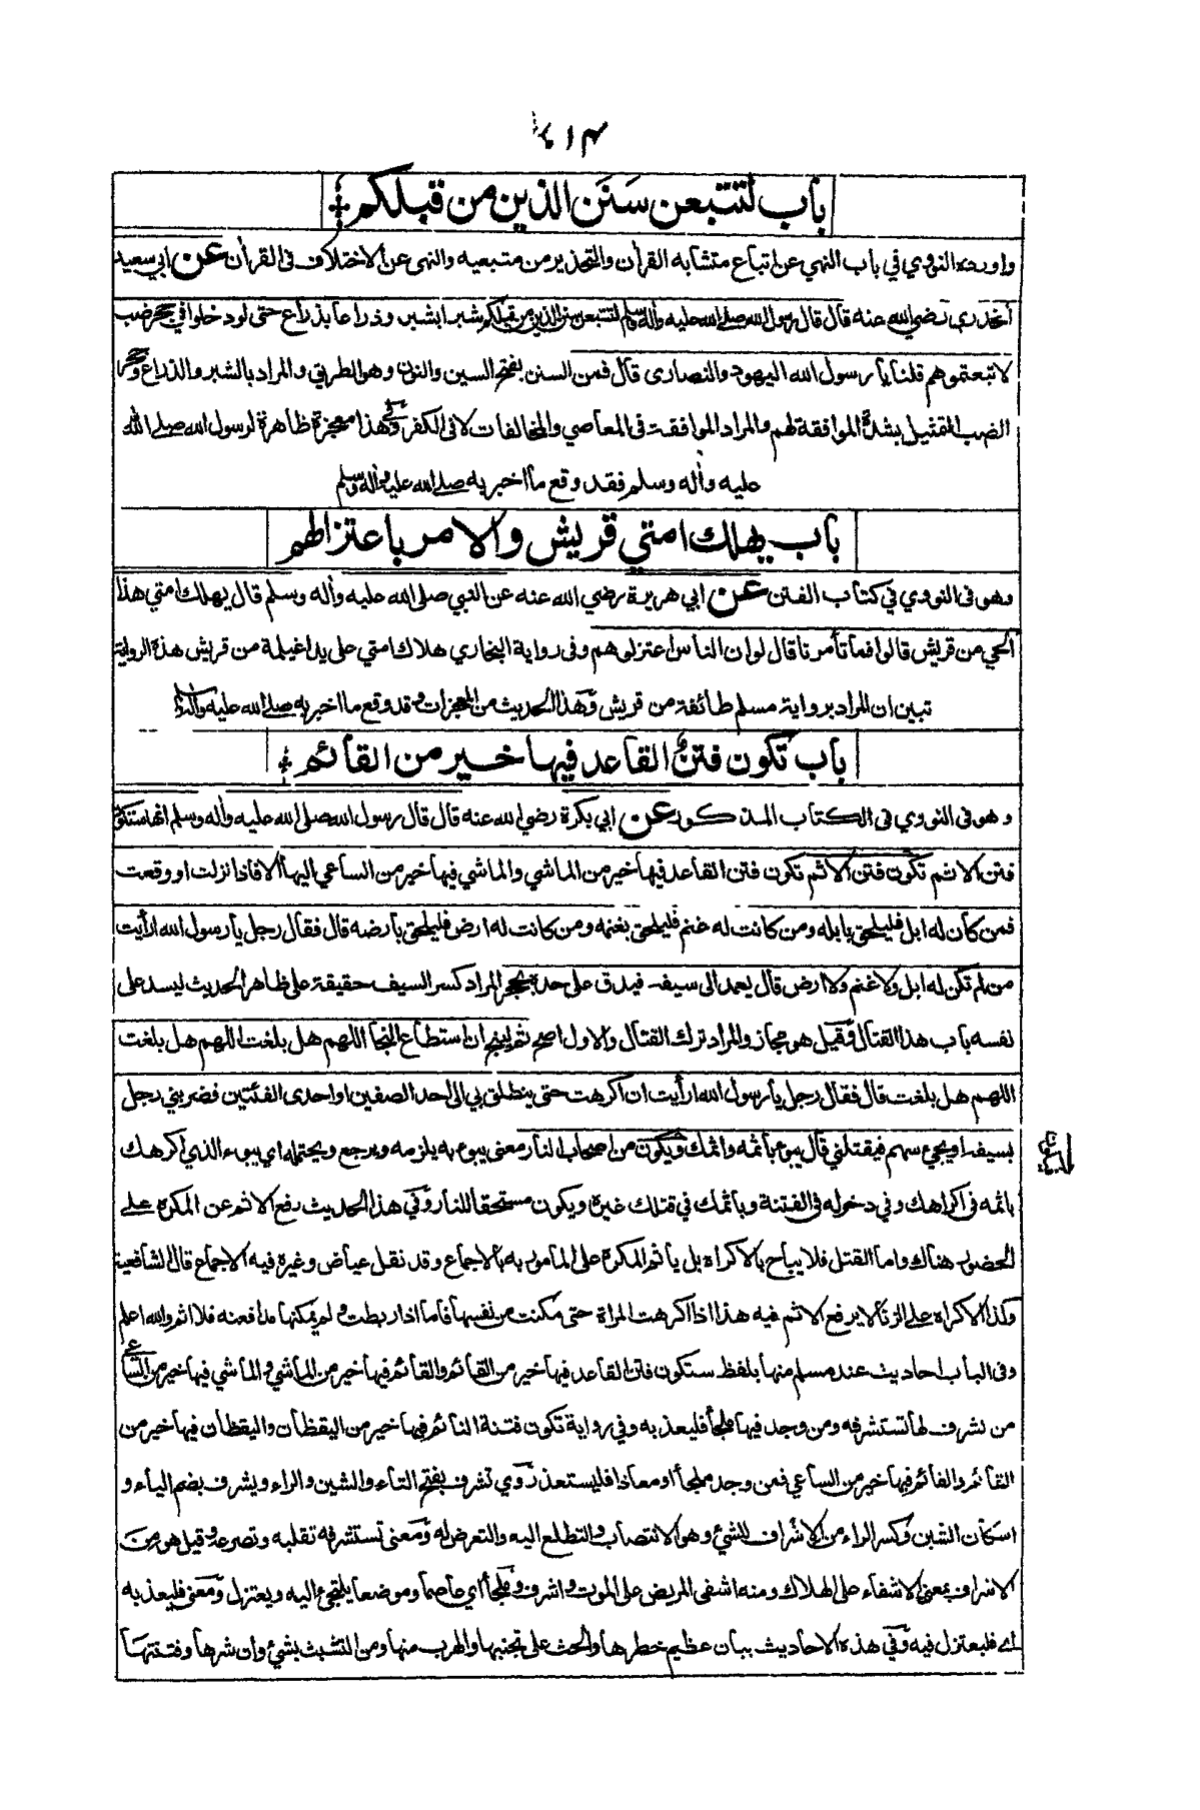 باب لتتبعن سَنَن الذين من قبلكم
واورده النووي في باب النهي عن اتباع متشابه القرأن والتحذير من متبعيه والنهى عن الاختلاف فى القرأن عن ابي سعيد
الخدري رضي الله عنه قال قال رسول الله صلى الله عليه وأله وسلم لتتبعن سنن الذين من قبلكم شبرا بشبر وذراعا بذراع حتى لو دخلوا في جحر ضب
لاتبعتموهم قلنا يا رسول الله اليهود والنصارى قال فمن السنن بفتح السين والنون وهو الطريق والمراد بالشبر والذراع وجحر
الضب التمثيل بشدة الموافقة لهم والمراد الموافقة فى المعاصي والمخالفات لا فى الكفر وفي هذا معجزة ظاهرة لرسول الله صلى الله
عليه وأله وسلم فقد وقع ما اخبر به صلى الله عليه وأله وسلم
باب يهلك امتي قريش والامر باعتزالهم
وهو فى النووي في كتاب الفتن عن ابي هريرة رضي الله عنه عن النبي صلى الله عليه وأله وسلم قال يهلك امتي هذا
الحي من قريش قالوا فما تأمرنا قال لو ان الناس اعتزلوهم وفى رواية البخاري هلاك امتي على يد اغيلمة من قريش هذه الرواية
تبين ان المراد برواية مسلم طائفة من قريش وهذا الحديث من المعجزات وقد وقع ما اخبر به صلى الله عليه وأله وسلم
باب تكون فتن القاعد فيها خير من القائم
وهو فى النووي فى الكتاب المذكور عن ابي بكرة رضي الله عنه قال قال رسول الله صلى الله عليه وأله وسلم انها ستكون
فتن الا ثم تكون فتن الا ثم تكون فتن القاعد فيها خير من الماشي والماشي فيها خير من الساعي اليها الا فاذا نزلت او وقعت
فمن كان له ابل فليلحق بابله ومن كانت له غنم فليلحق بغنمه ومن كانت له ارض فليلحق بارضه قال فقال رجل يا رسول الله ارأيت
من لم تكن له ابل ولا غنم ولا ارض قال يعمد الى سيفه فيدق على حده بحجر المراد كسر السيف حقيقة على ظاهر الحديث ليسد على
نفسه باب هذا القتال وقيل هو مجاز والمراد ترك القتال والاول اصح ثم لينج ان استطاع النجا اللهم هل بلغت اللهم هل بلغت
اللهم هل بلغت قال فقال رجل يا رسول الله ارأيت ان اكرهت حتى ينطلق بي الى احد الصفين او احدى الفئتين فضربني رجل
بسيفه او يجيء سهم فيقتلني قال يبوء باثمه واثمك ويكون من اصحاب النار معنى يبوء به يلزمه ويرجع ويحتمله اي يبوء الذي اكرهك
باثمه فى اكراهك وفي دخوله فى الفتنة وباثمك في قتلك غيره ويكون مستحقا للنار وفي هذا الحديث رفع الاثم عن المكره على
الحضور هناك واما القتل فلا يباح بالاكراه بل يأثم المكره على المأمور به بالاجماع وقد نقل عياض وغيره فيه الاجماع قال الشافعية
وكذا الاكراه على الزنا لا يرفع الاثم فيه هذا اذا اكرهت المراة حتى مكنت من نفسها فاما اذا ربطت ولم يمكنها مدافعته فلا اثم والله اعلم
وفى الباب احاديث عند مسلم منها بلفظ ستكون فتن القاعد فيها خير من القائم والقائم فيها خير من الماشي والماشي فيها خير من الساعي
من تشرف لها تستشرفه ومن وجد فيها ملجأ فليعذ به وفي رواية تكون فتنة النائم فيها خير من اليقظان واليقظان فيها خير من
القائم والقائم فيها خير من الساعي فمن وجد ملجأ او معاذا فليستعذ روي تشرف بفتح التاء والشين والراء ويشرف بضم الياء و
اسكان الشين وكسر الراء من الاشراف للشيء وهو الانتصاب والتطلع اليه والتعرض له ومعنى تستشرفه تقلبه وتصرعه وقيل هو من
الاشراف بمعنى الاشفاء على الهلاك ومنه اشفى المريض على الموت واشرف وملجأ اي عاصما وموضعا يلتجيء اليه ويعتزل ومعنى فليعذ به
اي فليعتزل فيه وفي هذه الاحاديث بيان عظيم خطرها والحث على تجنبها والهرب منها ومن التشبث بشيء وان شرها وفتنتها